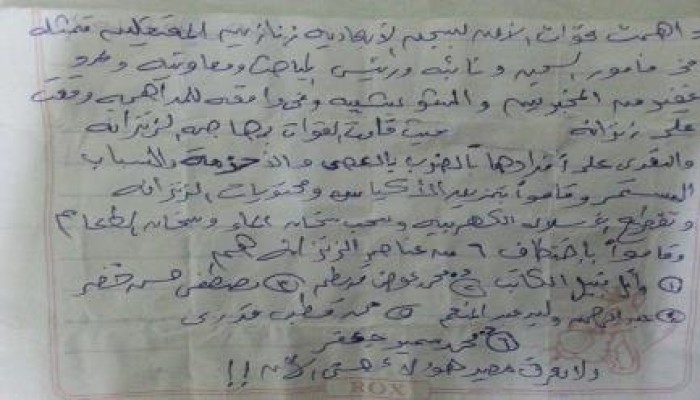 = اقتحمت قوات الأمن لسجن الأبعادية زنازين المعتقلين متمثله
في مأمور السجن ونائبه ورئيس المباحث ومعاونيه وعدد
غفير من المخبرين والمشوشين وفى دافعه للمداهمه وقفت
على زنزانة حيث قامت القوات بمهاجمه الزنزانه
والتعدى على أفرادها بالضرب بالعصى والأحزمة والسباب
المستمر وقاموا بتمزيق الأكياس ومحتويات الزنزانه
وتقطيع الأسلاك الكهربيه وسحب سخان الماء وسخان الطعام
وقاموا بإختطاف ٦ من عناصر الزنزانة هم
١ وائل نبيل الكاتب ٢ محمد عوض ٣ مصطفى حسن خضر
٤ عبدالرحمن وليد عبدالمنعم ٥ محمد قطب قدرى
٦ محمد سمير جعفر
ولا يعرف مصير هؤلاء حتى الآن !!
ROX